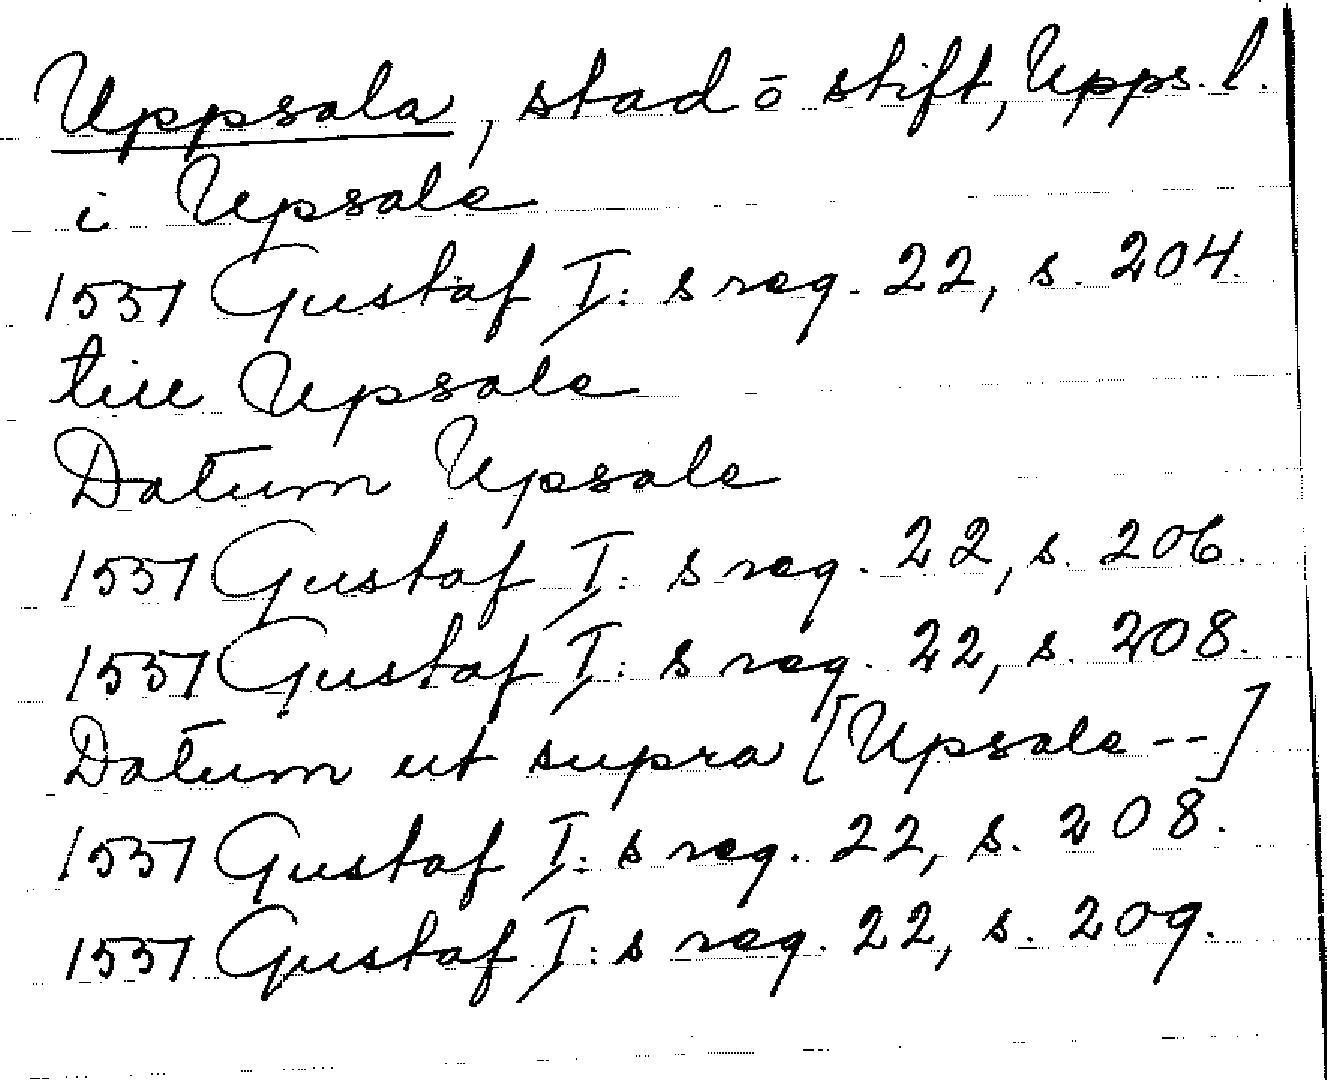 Uppsala, stad o stift, Upps. l.
i Upsale
1551 Gustaf I:s reg. 22, s. 204.
till Upsale
Datum Upsale
1551 Gustaf I:s reg. 22, s. 206.
1551 Gustaf I:s reg. 22, s. 208.
Datum ut supra [Upsale --]
1551 Gustaf I:s reg. 22, s. 208.
1551 Gustaf I:s reg. 22, s. 209.